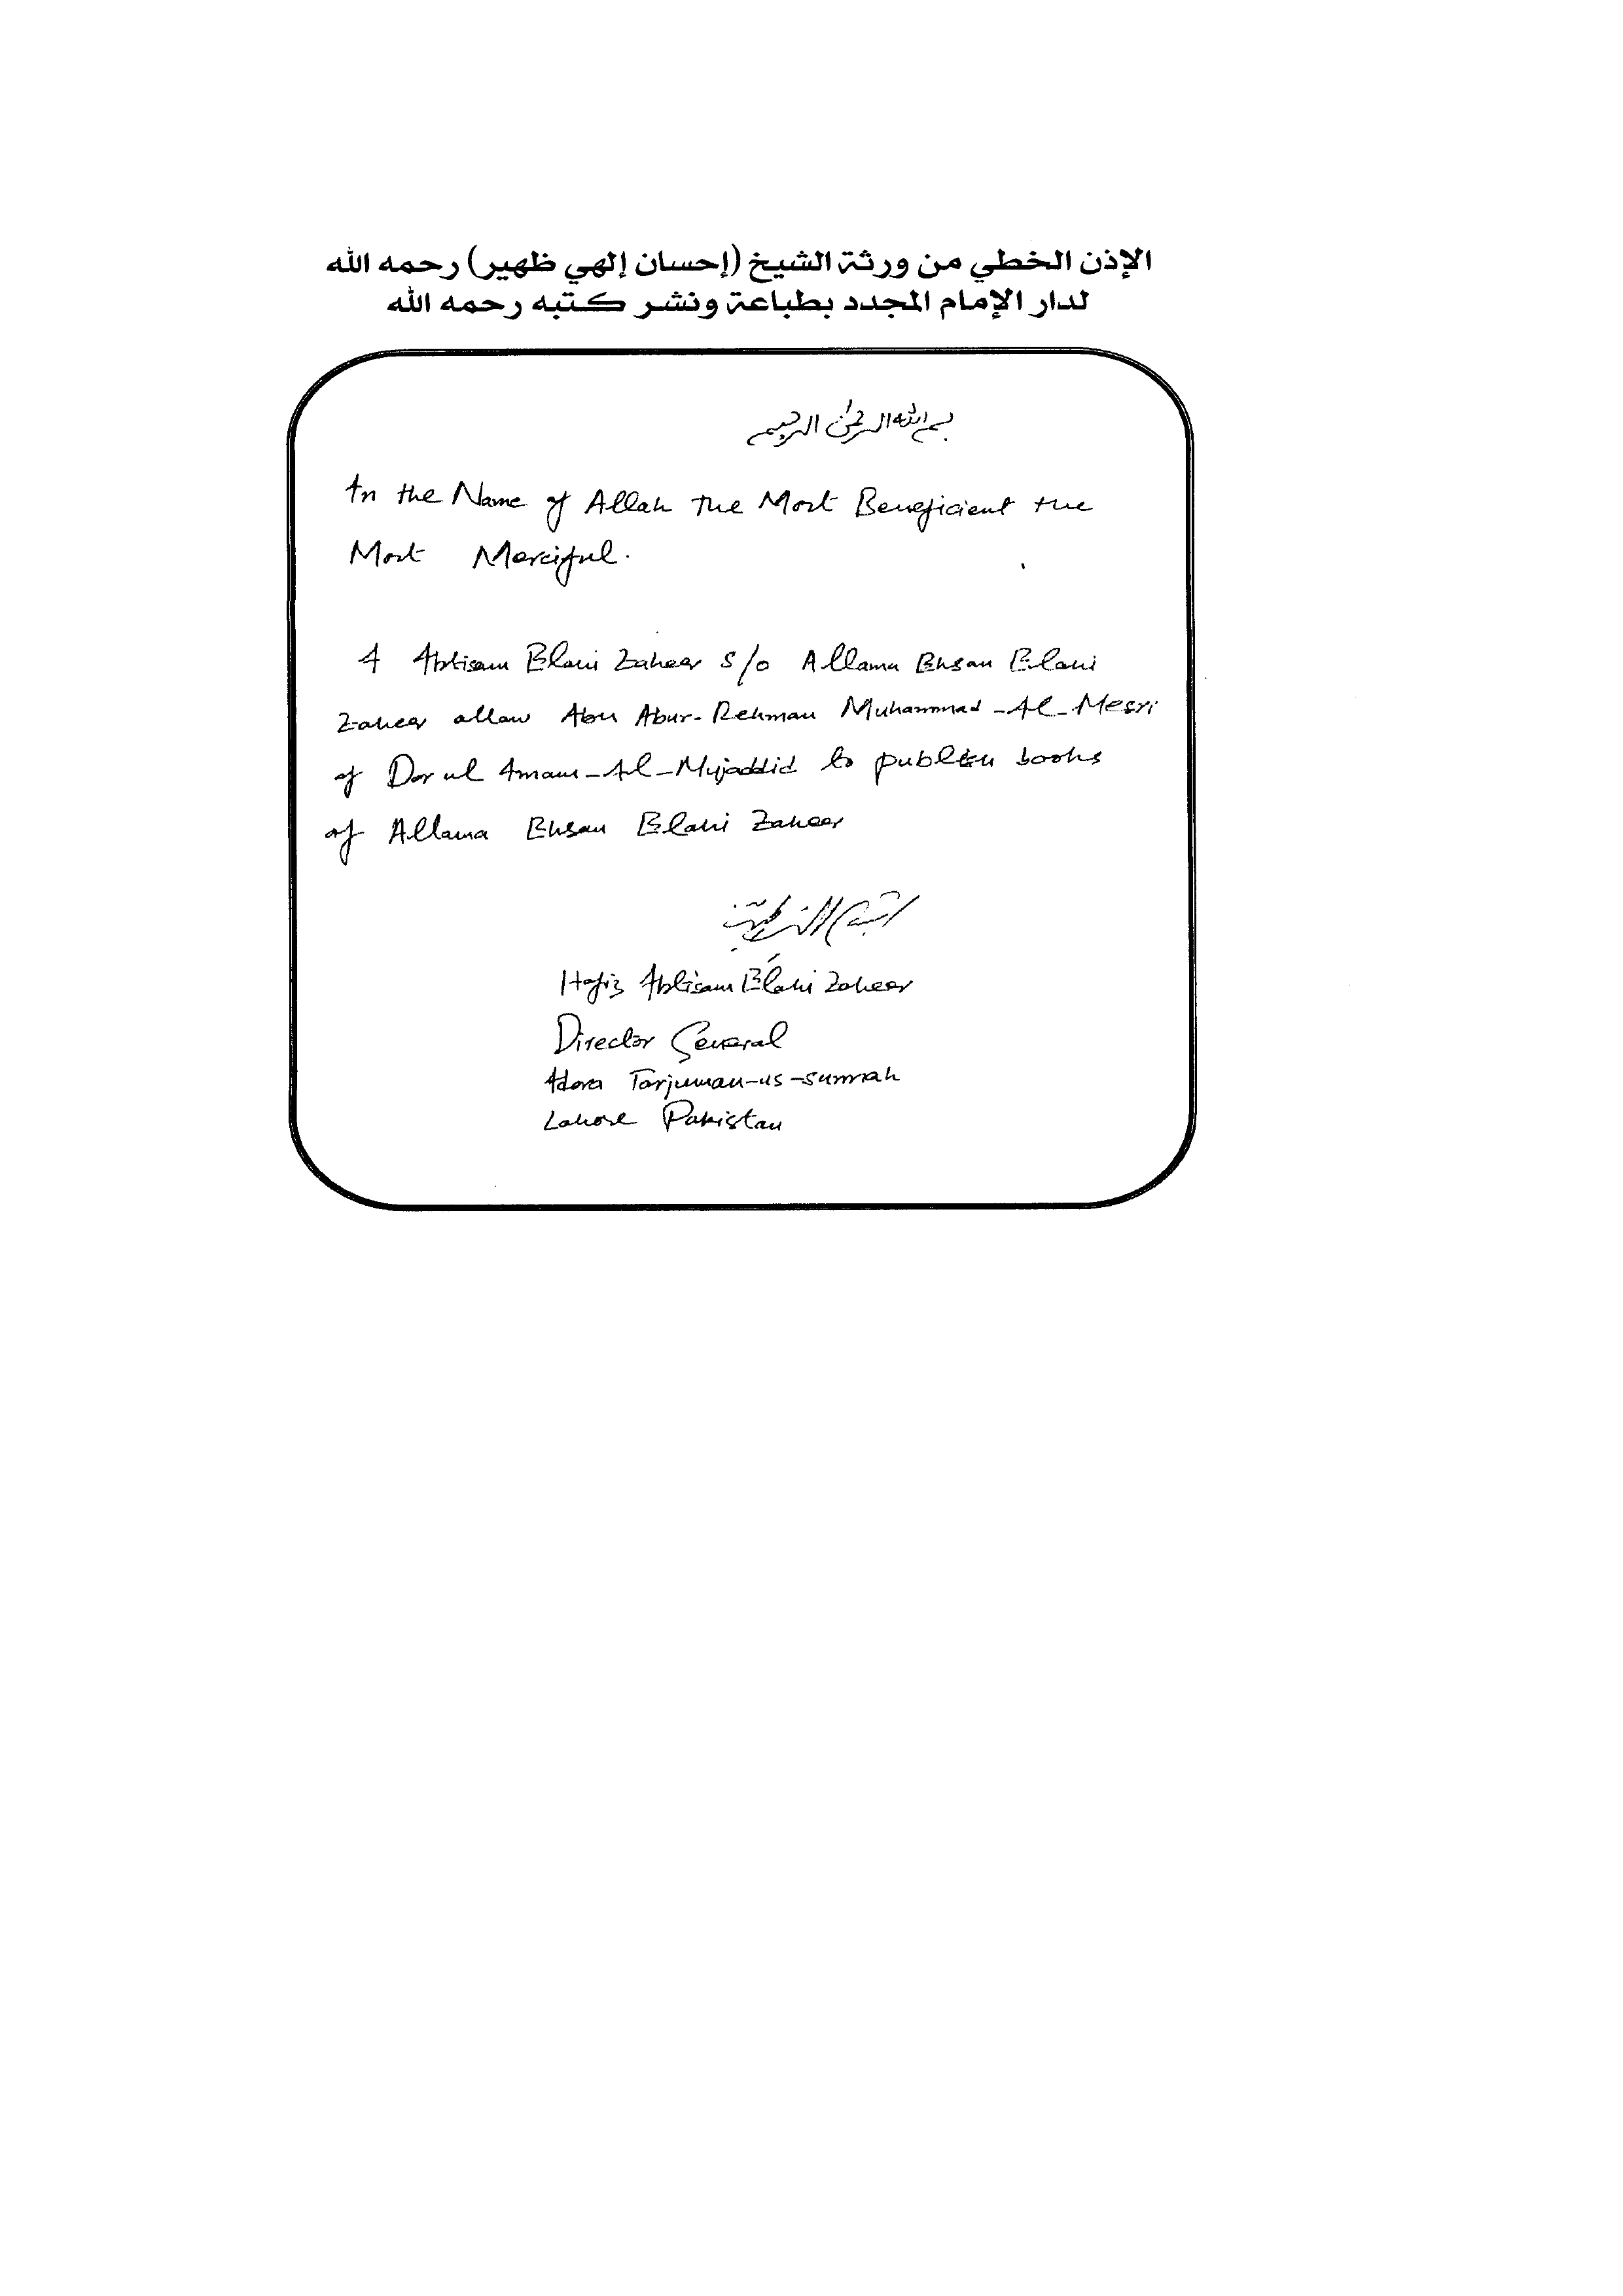 الإذن الخطي من ورثة الشيخ (إحسان إلهي ظهير) رحمه الله
لدار الإمام المجدد بطباعة ونشر كتبه رحمه الله
بسم الله الرحمن الرحيم
In the Name of Allah The Most Beneficient the
Most Merciful.
I Ibtisam Elahi Zaheer s/o Allama Ehsan Elahi
Zaheer allow Abu Abur-Rehman Muhammad-Al-Mesri
of Dar ul Imam-Al-Mujaddid to publish books
of Allama Ehsan Elahi Zaheer
Hafiz Ibtisam Elahi Zaheer
Director General
Idara Tarjuman-us-sunnah
Lahore Pakistan